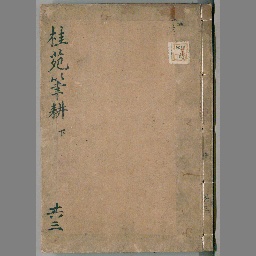 桂苑筆耕
下
共三